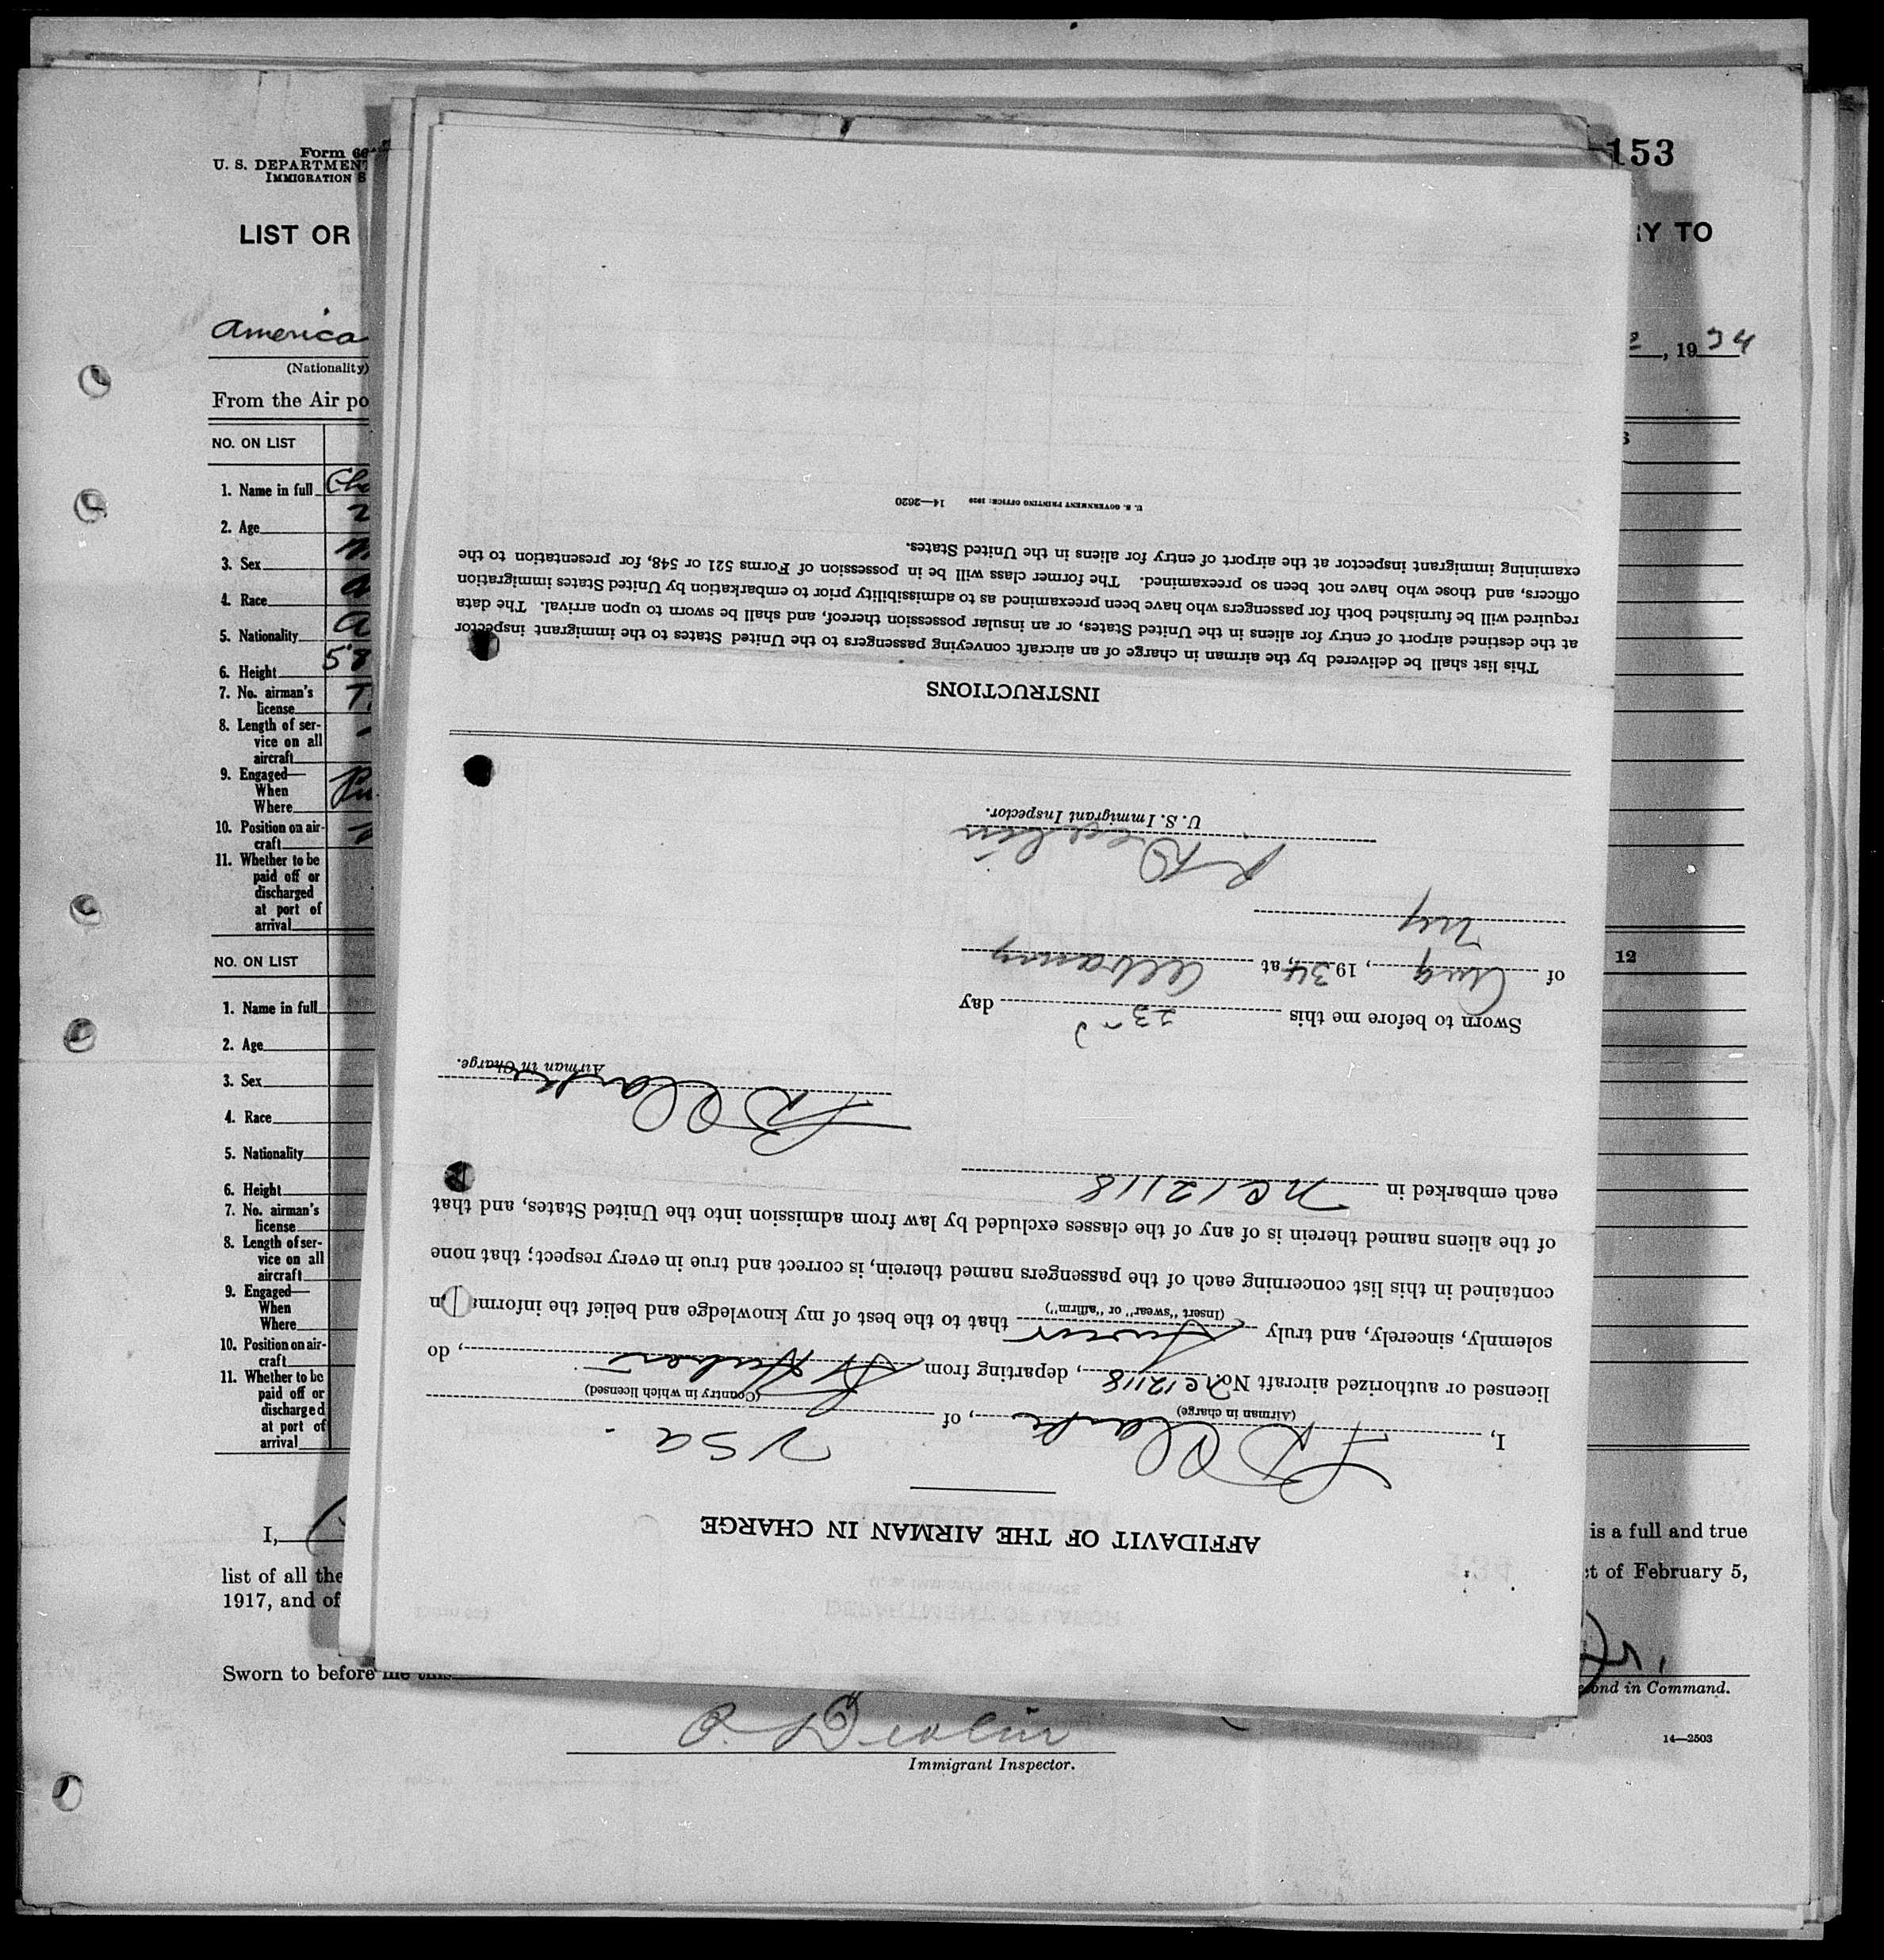 Form 66
U. S. DEPARTMENT
IMMIGRATION S
153
LIST OR
RY TO
America
, 19 34
(Nationality)
From the Air po
NO. ON LIST
1. Name in full
2. Age
3. Sex
4. Race
5. Nationality
6. Height 5'8
7. No. airman's
license
8. Length of ser-
vice on all
aircraft
9. Engaged—
When
Where
10. Position on air-
craft
11. Whether to be
paid off or
discharged
at port of
arrival
NO. ON LIST
12
1. Name in full
2. Age
3. Sex
4. Race
5. Nationality
6. Height
7. No. airman's
license
8. Length of ser-
vice on all
aircraft
9. Engaged—
When
Where
10. Position on air-
craft
11. Whether to be
paid off or
discharged
at port of
arrival
I,
is a full and true
list of all the
ct of February 5,
1917, and of
Sworn to before me this
Second in Command.
Devlin
Immigrant Inspector.
14—2503
AFFIDAVIT OF THE AIRMAN IN CHARGE
I, F B Clarke, of USA.
(Airman in charge)
(Country in which licensed)
licensed or authorized aircraft No. nc12118, departing from St Hubert, do
solemnly, sincerely, and truly swear that to the best of my knowledge and belief the information
(Insert "swear" or "affirm")
contained in this list concerning each of the passengers named therein, is correct and true in every respect; that none
of the aliens named therein is of any of the classes excluded by law from admission into the United States, and that
each embarked in nc12118
F B Clarke
Airman in Charge.
Sworn to before me this 23rd day
of Aug, 1934, at Albany
NY
Devlin
U. S. Immigrant Inspector.
INSTRUCTIONS
This list shall be delivered by the airman in charge of an aircraft conveying passengers to the United States to the immigrant inspector
at the destined airport of entry for aliens in the United States, or an insular possession thereof, and shall be sworn to upon arrival. The data
required will be furnished both for passengers who have been preexamined as to admissibility prior to embarkation by United States immigration
officers, and those who have not been so preexamined. The former class will be in possession of Forms 521 or 548, for presentation to the
examining immigrant inspector at the airport of entry for aliens in the United States.
U. S. GOVERNMENT PRINTING OFFICE: 1929 14—2620